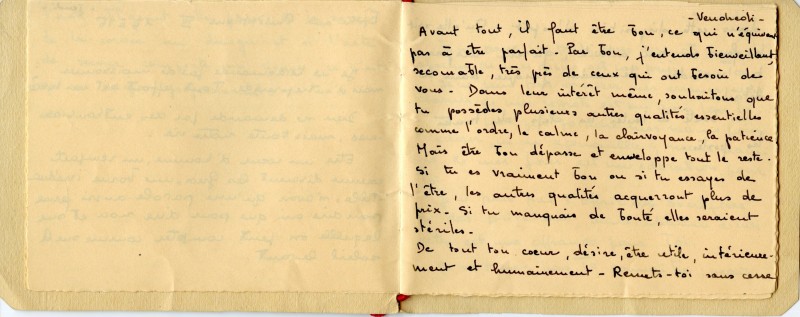 - Vendredi -
Avant tout, il faut être bon, ce qui n'équivaut
pas à être parfait - Par bon, j'entends bienveillant,
secourable, très près de ceux qui ont besoin de
vous - Dans leur intérêt même, souhaitons que
tu possèdes plusieurs autres qualités essentielles
comme l'ordre, le calme, la clairvoyance, la patience.
Mais être bon dépasse et enveloppe tout le reste.
Si tu es vraiment bon ou si tu essayes de
l'être, les autres qualités acquerront plus de
prix - Si tu manquais de bonté, elles seraient
stériles -
De tout ton coeur, désire, être utile, intérieure-
ment et humainement - Remets-toi sans cesse